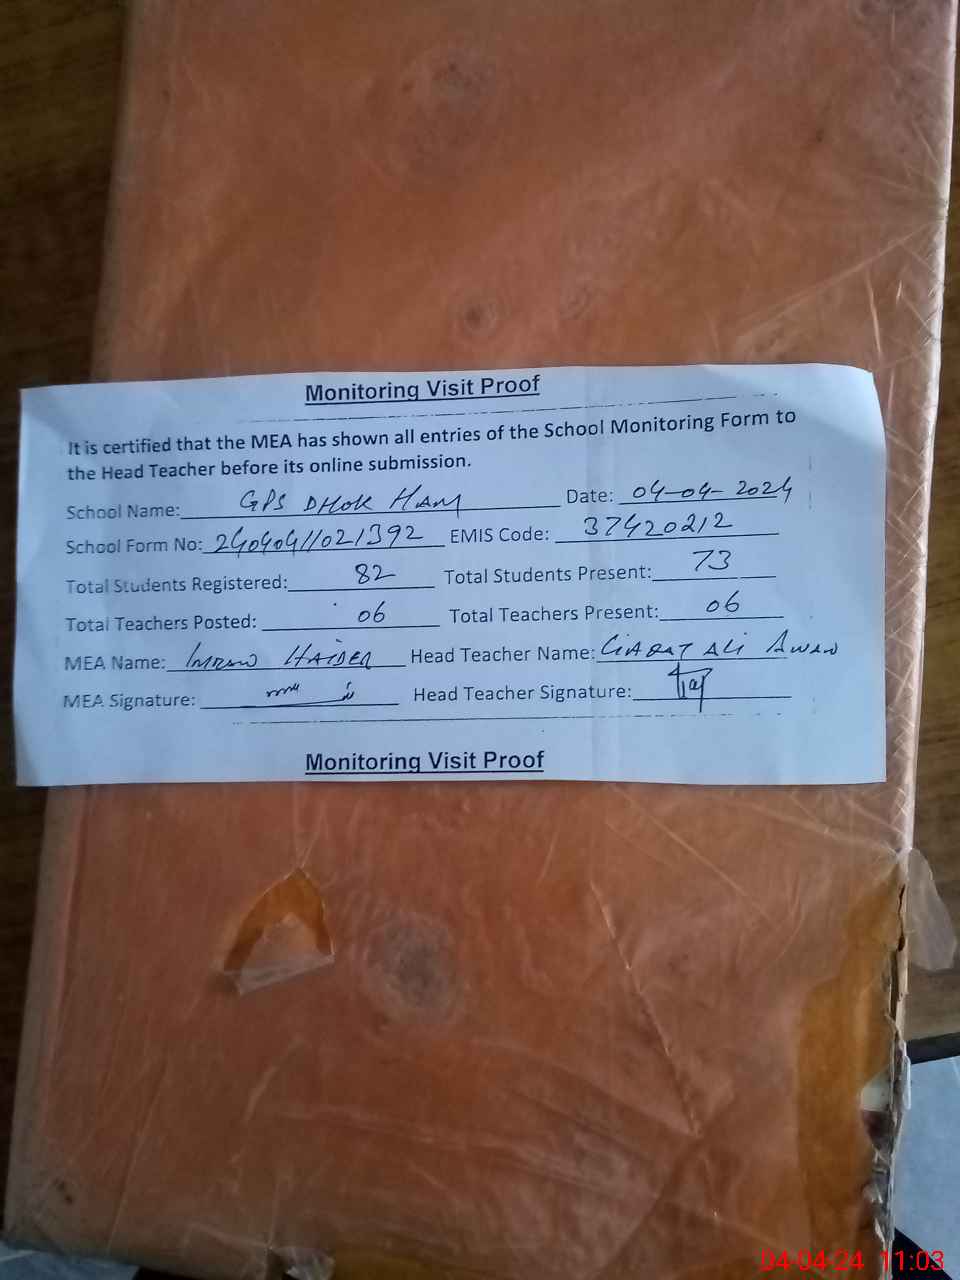 Monitoring Visit Proof
It is certified that the MEA has shown all entries of the School Monitoring Form to
the Head Teacher before its online submission.
School Name: GPS DHOK HAM Date: 04-04-2024
School Form No: 24040411021392 EMIS Code: 37420212
Total Students Registered: 82 Total Students Present: 73
Total Teachers Posted: 06 Total Teachers Present: 06
MEA Name: IMRAN HAIDER Head Teacher Name: ALI AWAN
MEA Signature: Head Teacher Signature:
Monitoring Visit Proof
04-04-24 11:03